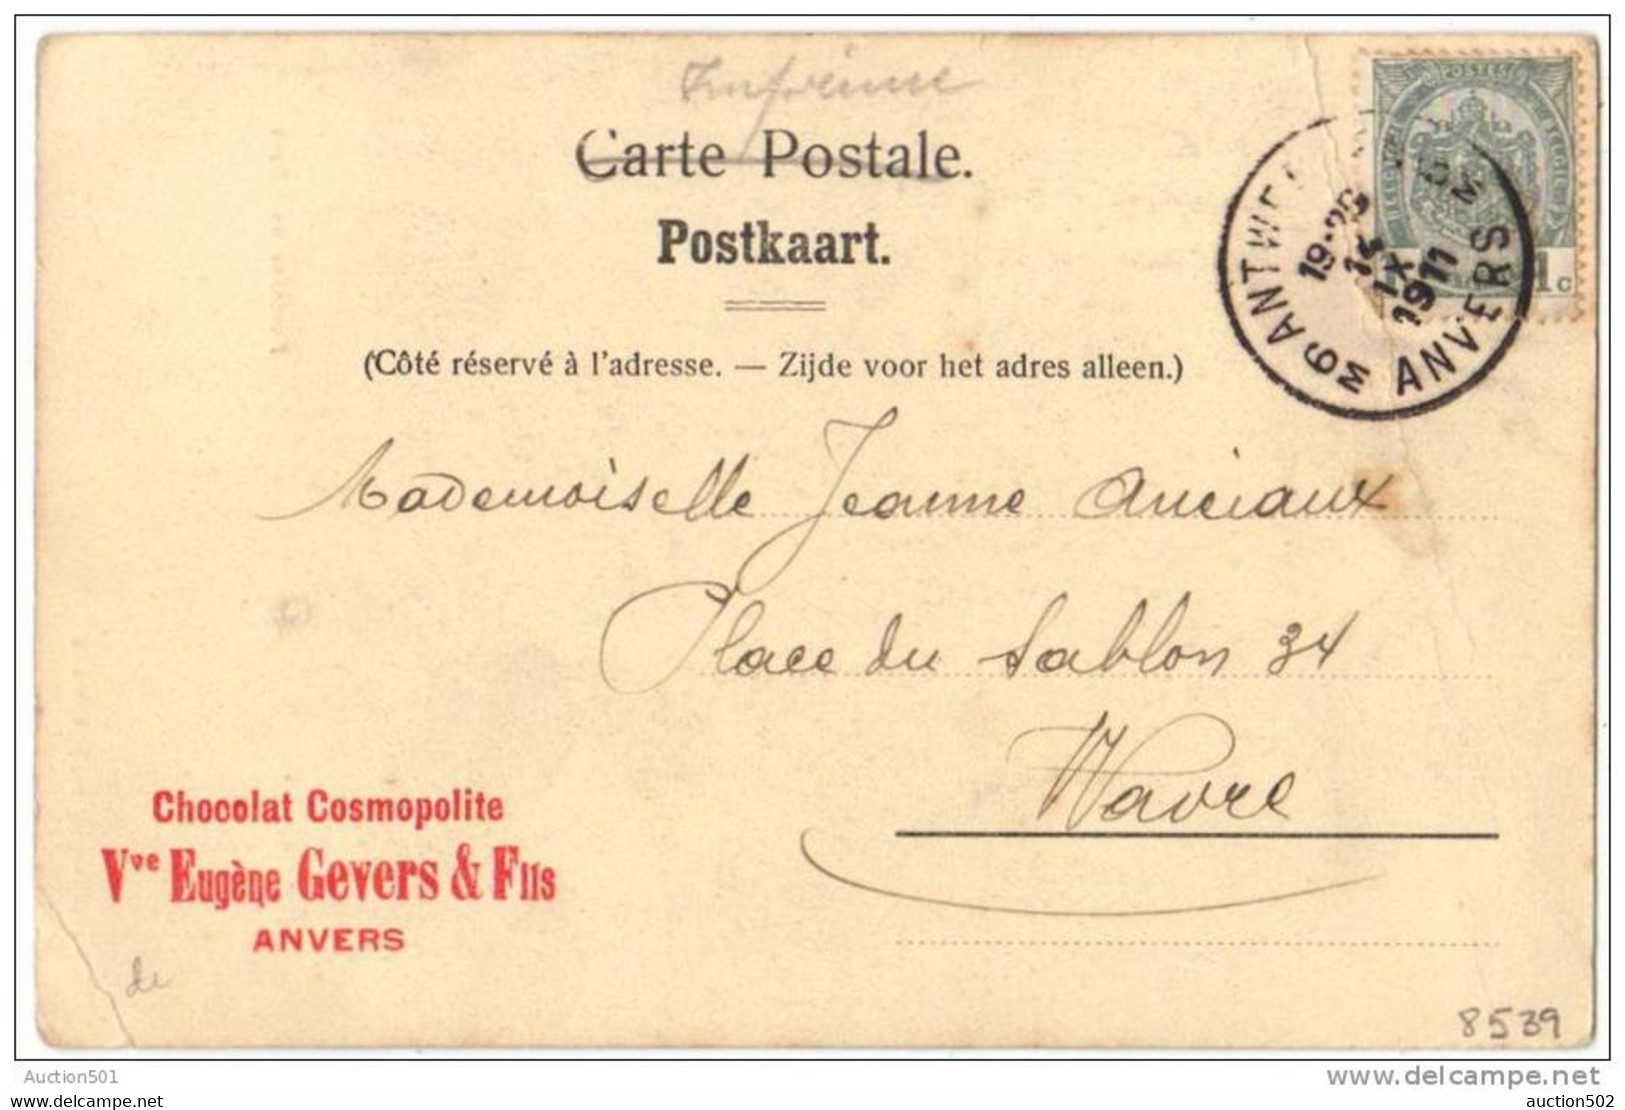 Imprime
Carte Postale.
Postkaart.
(Côté réservé à l'adresse. — Zijde voor het adres alleen.)
POSTES
BELGIQUE BELGIE
1c
ANTWE
19-20
IX
1911
6M ANVERS M
Mademoiselle Jeanne Anciaux
Place du Sablon 34
Wavre
Chocolat Cosmopolite
Vve Eugène Gevers & Fils
ANVERS
de
8539
Auction501
www.delcampe.net
auction502
auction502